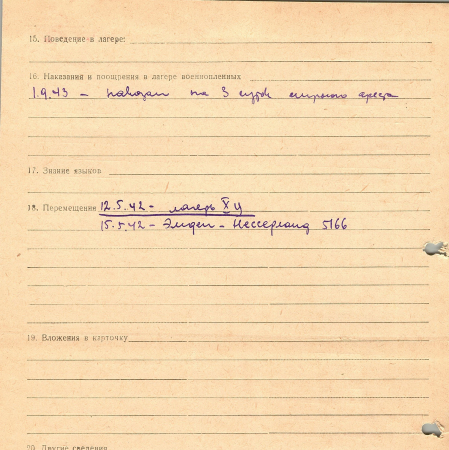 15. Поведение в лагере:
16. Наказания и поощрения в лагере военнопленных
1.9.43 – наказан на 3 суток строгого ареста
17. Знание языков
18. Перемещения 12.5.42 – лагерь X Ц
15.5.42 – Эмден – Нессерланд 5166
19. Вложения в карточку
20. Другие сведения